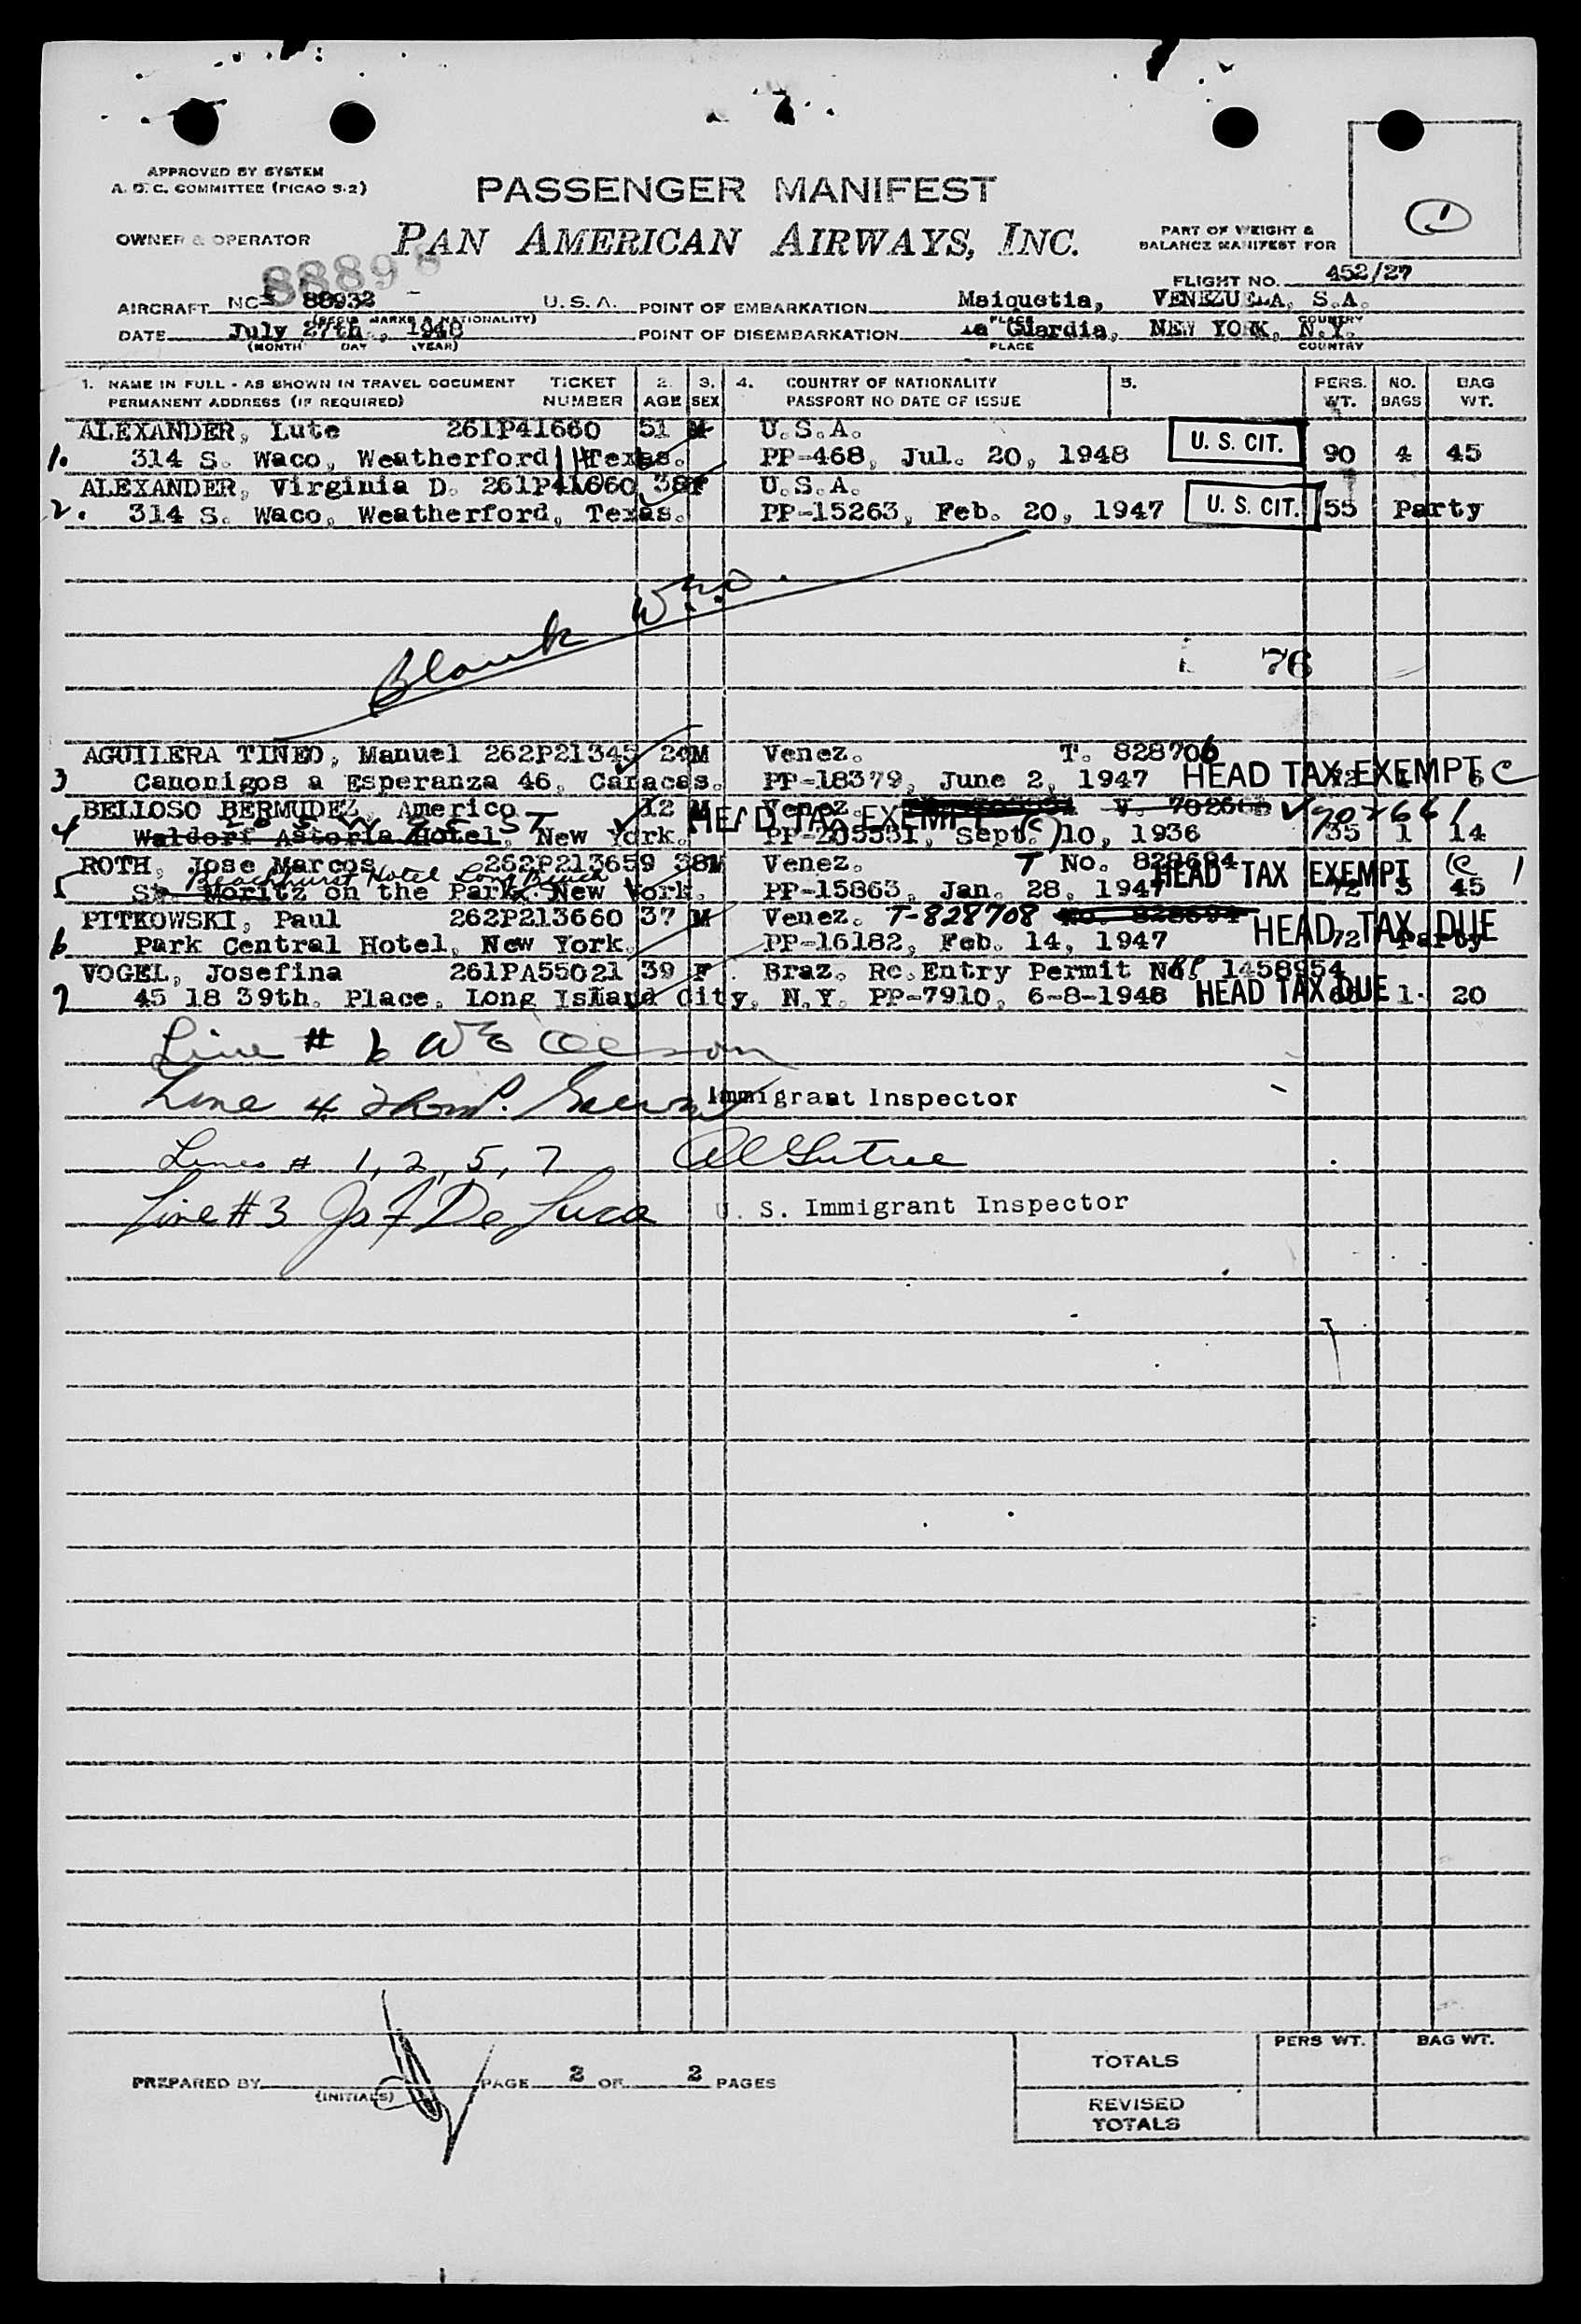 APPROVED BY SYSTEM
A. D. C. COMMITTEE (PICAO S-2)
PASSENGER MANIFEST
OWNER & OPERATOR PAN AMERICAN AIRWAYS, INC.
PART OF WEIGHT &
BALANCE MANIFEST FOR
1
88898
FLIGHT NO. 452/27
AIRCRAFT NC- 88932 U. S. A. POINT OF EMBARKATION Maiquetia, VENEZUELA, S.A.
(REGIS MARKS & NATIONALITY) PLACE COUNTRY
DATE July 27th., 1948 POINT OF DISEMBARKATION La Guardia, NEW YORK, N.Y.
(MONTH DAY YEAR) PLACE COUNTRY
1. NAME IN FULL - AS SHOWN IN TRAVEL DOCUMENT TICKET 2. 3. 4. COUNTRY OF NATIONALITY 5. PERS. NO. BAG
PERMANENT ADDRESS (IF REQUIRED) NUMBER AGE SEX PASSPORT NO DATE OF ISSUE WT. BAGS WT.
ALEXANDER, Lute 261P41660 51 M U.S.A. U. S. CIT.
1. 314 S. Waco, Weatherford Texas. PP-468, Jul. 20, 1948 90 4 45
ALEXANDER, Virginia D. 261P41660 38 F U.S.A. U. S. CIT.
2. 314 S. Waco, Weatherford, Texas. PP-15263, Feb. 20, 1947 55 Party
Blank
76
AGUILERA TINEO, Manuel 262P21345 M Venez. T. 828706
3 Canonigos a Esperanza 46, Caracas. PP-18379, June 2, 1947 HEAD TAX EXEMPT C
BELLOSO BERMUDEZ, Americo 12 M Venez. V. 702666 702661
4 Waldorf Astoria Hotel, New York. HEAD TAX EXEMPT Sept. 10, 1936 35 1 14
ROTH, Jose Marcos 262P213659 38 M Venez. T No. 828694
Beachhurst Hotel Long Branch
5 St. Moritz on the Park, New York. PP-15863, Jan. 28, 1947 HEAD TAX EXEMPT 72 3 45
PITKOWSKI, Paul 262P213660 37 M Venez. T-828708 No. 828694
6 Park Central Hotel, New York. PP-16182, Feb. 14, 1947 HEAD TAX DUE 72 Party
VOGEL, Josefina 261PA55021 39 F Braz. Re.Entry Permit No. 1458954
7 45 18 39th. Place, Long Island City, N.Y. PP-7910, 6-8-1948 HEAD TAX DUE 1 20
Line # 6
Line 4 Immigrant Inspector
Lines # 1, 2, 5, 7
Line #3 Jas F De Luca U. S. Immigrant Inspector
PERS WT. BAG WT.
TOTALS
PREPARED BY (INITIALS) PAGE 2 OF 2 PAGES
REVISED
TOTALS